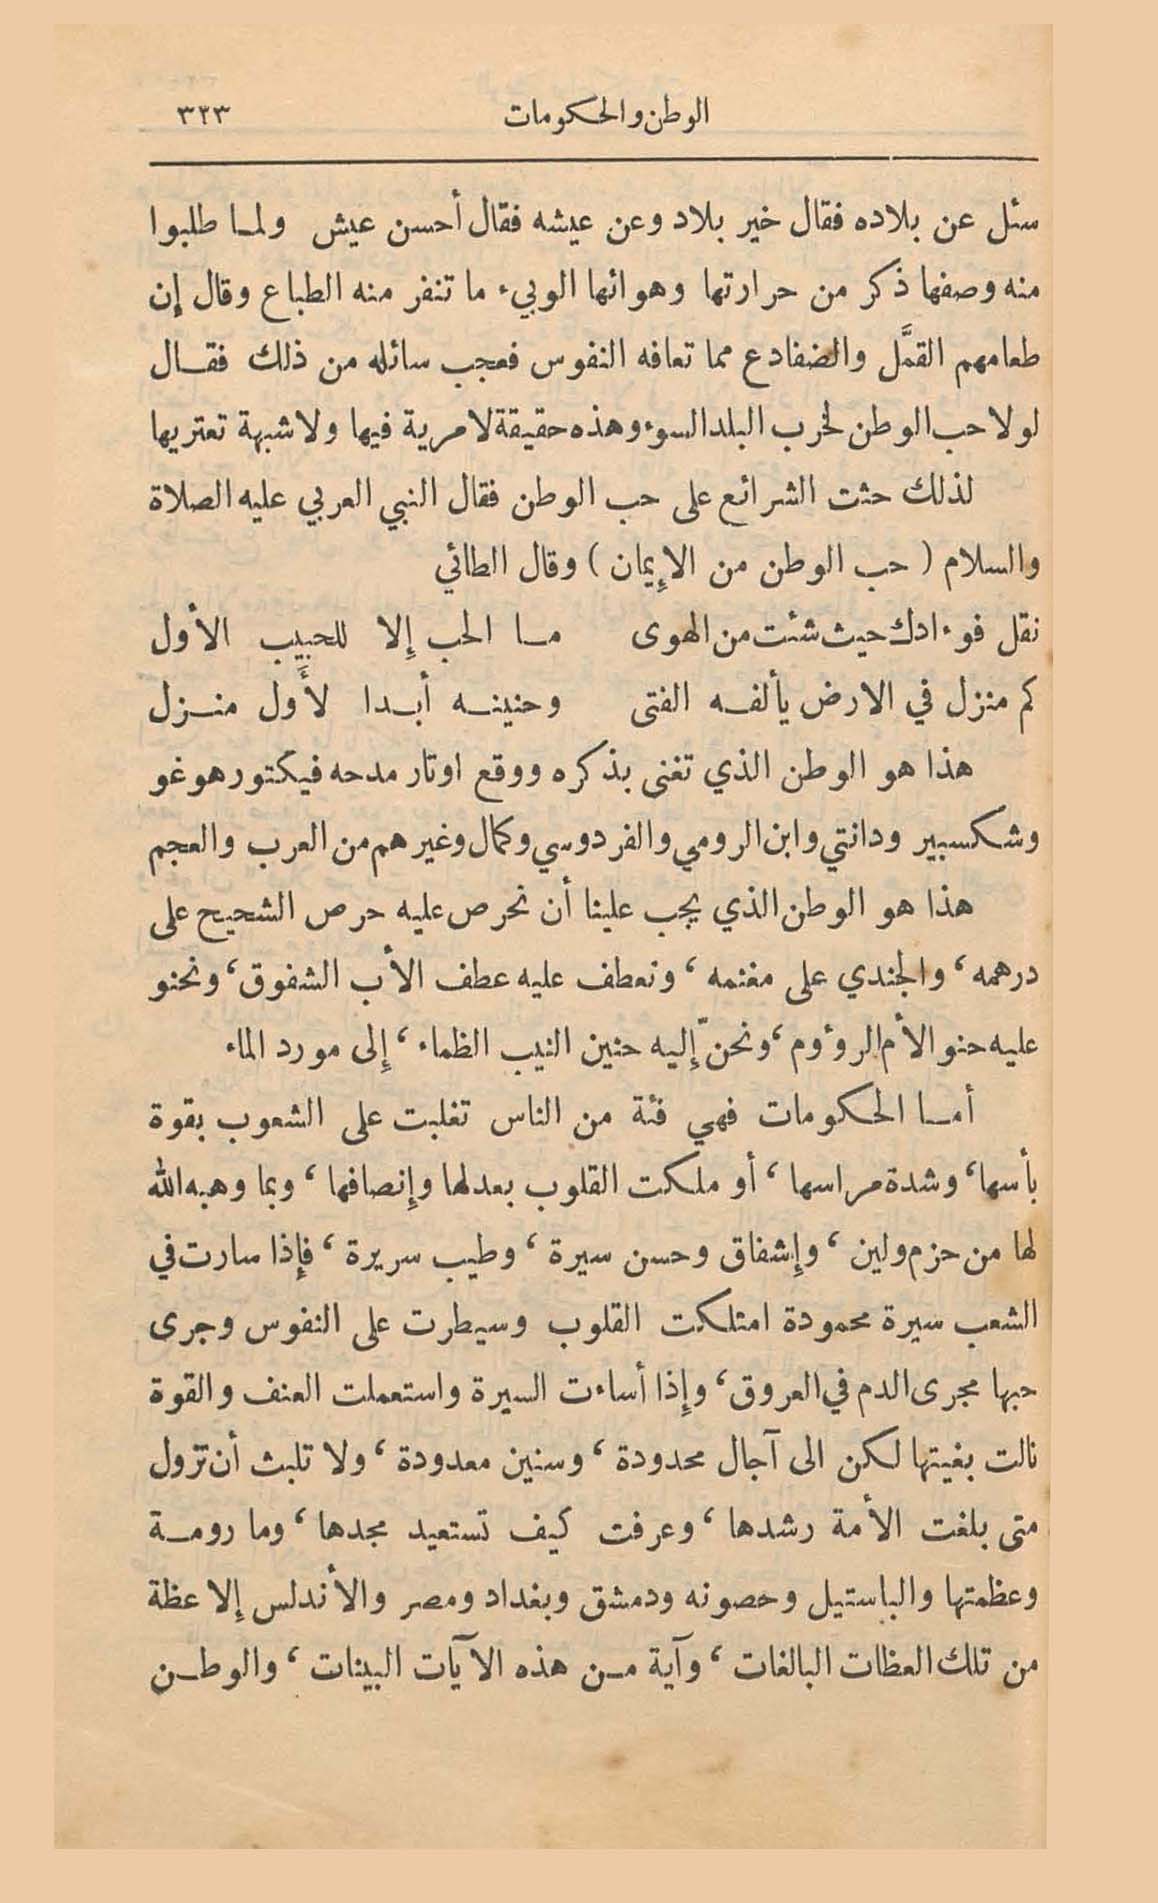 الوطن والحكومات ٣٢٣
سئل عن بلاده فقال خير بلاد وعن عيشه فقال أحسن عيش ولما طلبوا
منه وصفها ذكر من حرارتها وهوائها الوبيء ما تنفر منه الطباع وقال إن
طعامهم القمَّل والضفادع مما تعافه النفوس فعجب سائله من ذلك فقال
لولا حب الوطن لخرب البلد السوء وهذه حقيقة لا مرية فيها ولا شبهة تعتريها
لذلك حثت الشرائع على حب الوطن فقال النبي العربي عليه الصلاة
والسلام ( حب الوطن من الإيمان ) وقال الطائي
نقل فوءادك حيث شئت من الهوى ما الحب إلا للحبيب الأول
كم منزل في الارض يألفه الفتى وحنينه أبدا لأَول منزل
هذا هو الوطن الذي تغنى بذكره ووقع اوتار مدحه فيكتور هوغو
وشكسبير ودانتي وابن الرومي والفردوسي وكمال وغيرهم من العرب والعجم
هذا هو الوطن الذي يجب علينا أن نحرص عليه حرص الشحيح على
درهمه ، والجندي على مغنمه ، ونعطف عليه عطف الأب الشفوق ، ونحنو
عليه حنو الأم الروءوم ، ونحنّ إليه حنين النيب الظماء ، إلى مورد الماء
أما الحكومات فهي فئة من الناس تغلبت على الشعوب بقوة
بأسها ، وشدة مراسها ، أو ملكت القلوب بعدلها وإنصافها ، وبما وهبه الله
لها من حزم ولين ، وإشفاق وحسن سيرة ، وطيب سريرة ، فإذا سارت في
الشعب سيرة محمودة امتلكت القلوب وسيطرت على النفوس وجرى
حبها مجرى الدم في العروق ، وإذا أساءت السيرة واستعملت العنف والقوة
نالت بغيتها لكن الى آجال محدودة ، وسنين معدودة ، ولا تلبث أن تزول
متى بلغت الأمة رشدها ، وعرفت كيف تستعيد مجدها ، وما رومة
وعظمتها والباستيل وحصونه ودمشق وبغداد ومصر والأندلس إلا عظة
من تلك العظات البالغات ، وآية من هذه الآيات البينات ، والوطن